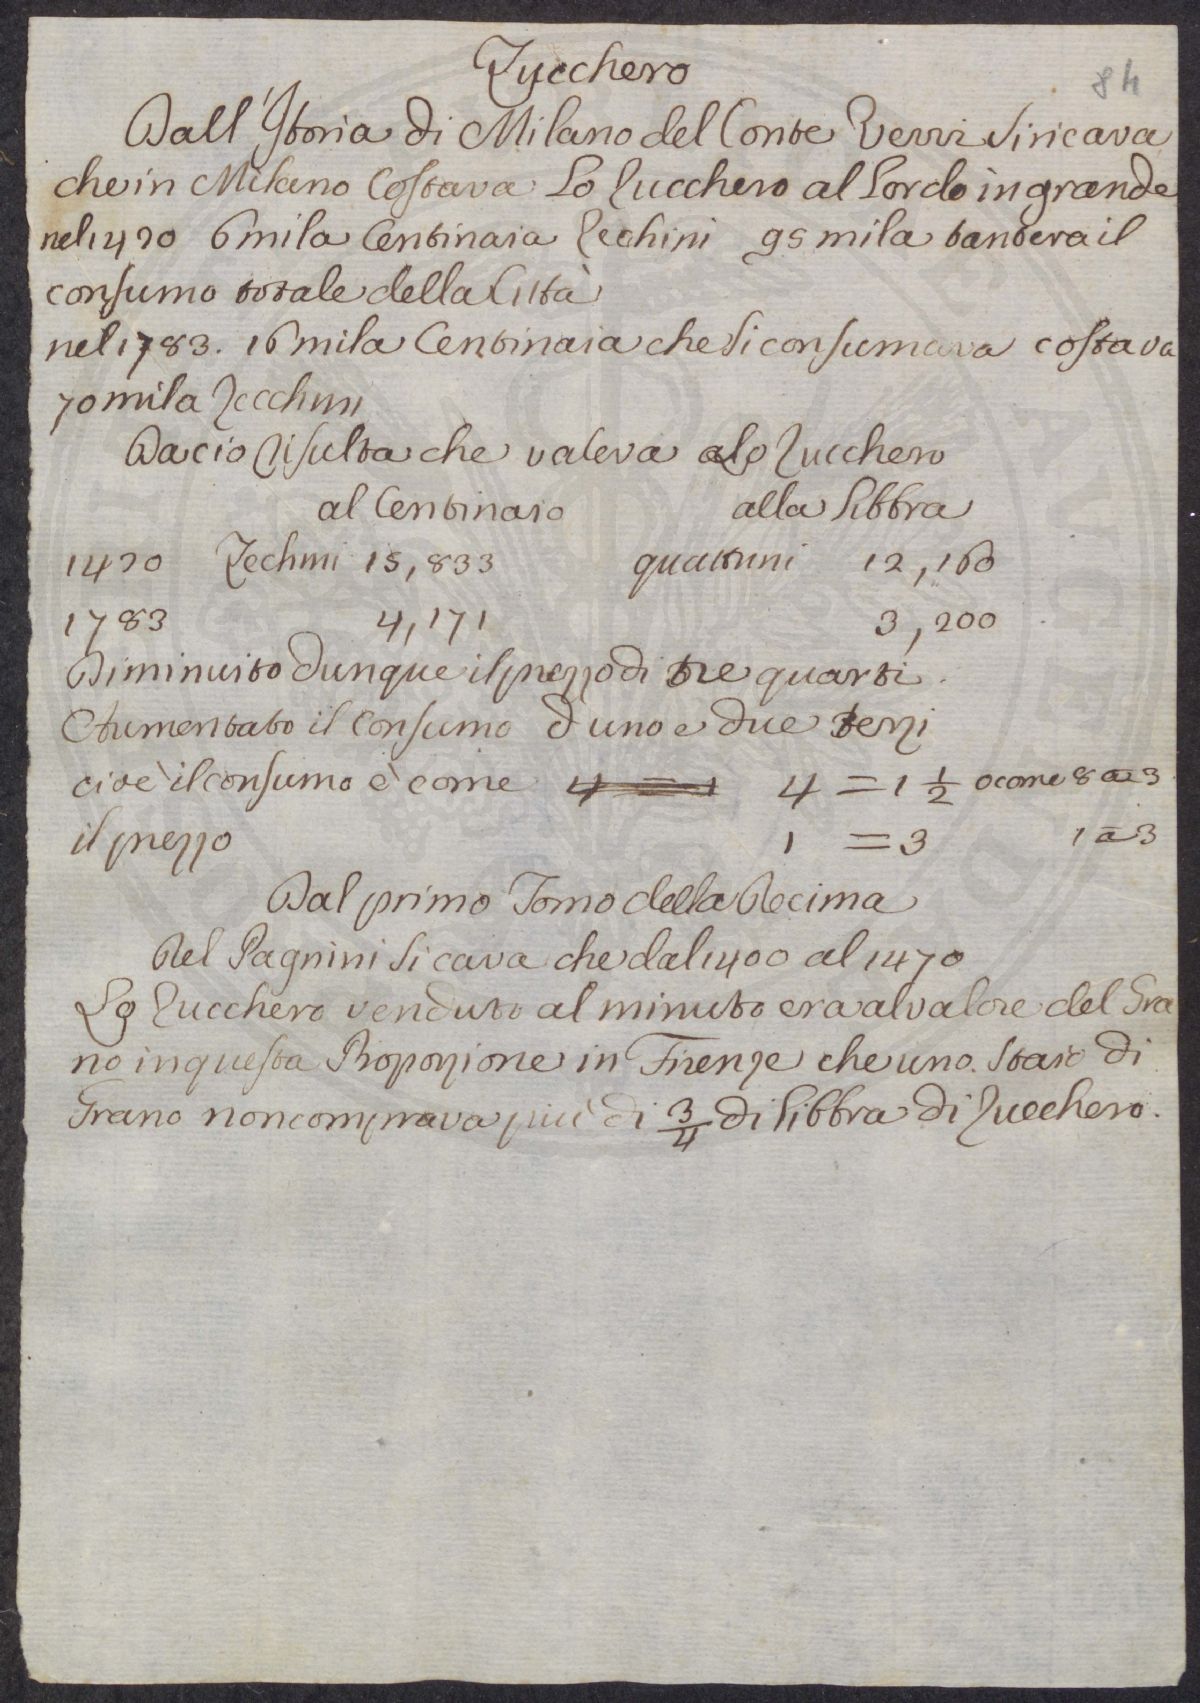 84
Zucchero
Dall'Istoria di Milano del Conte Verri si ricava
che in Milano Costava Lo Zucchero al Lordo in grande
nel 1420 6 mila Centinaia Zechini 95 mila tant'era il
consumo totale della Città
nel 1783. 16 mila Centinaia che si consumava costava
70 mila Zecchini
Da cio risulta che valeva Lo Zucchero
al Centinaio alla Libbra
1420 Zechini 15,833 quattrini 12,160
1783 4,171 3,200
Diminuito dunque il prezzo di tre quarti.
Aumentato il Consumo d'uno e due terzi
cioè il consumo è come 4 = 1 4 = 1 1/2 o come 8 a 3
il prezzo 1 = 3 1 a 3
Dal primo Tomo della Decima
Del Pagnini si cava che dal 1400 al 1470
Lo Zucchero venduto al minuto era al valore del Gra
no in questa Proporzione in Firenze che uno Staio di
Grano non comprava più di 3/4 di Libbra di Zucchero.